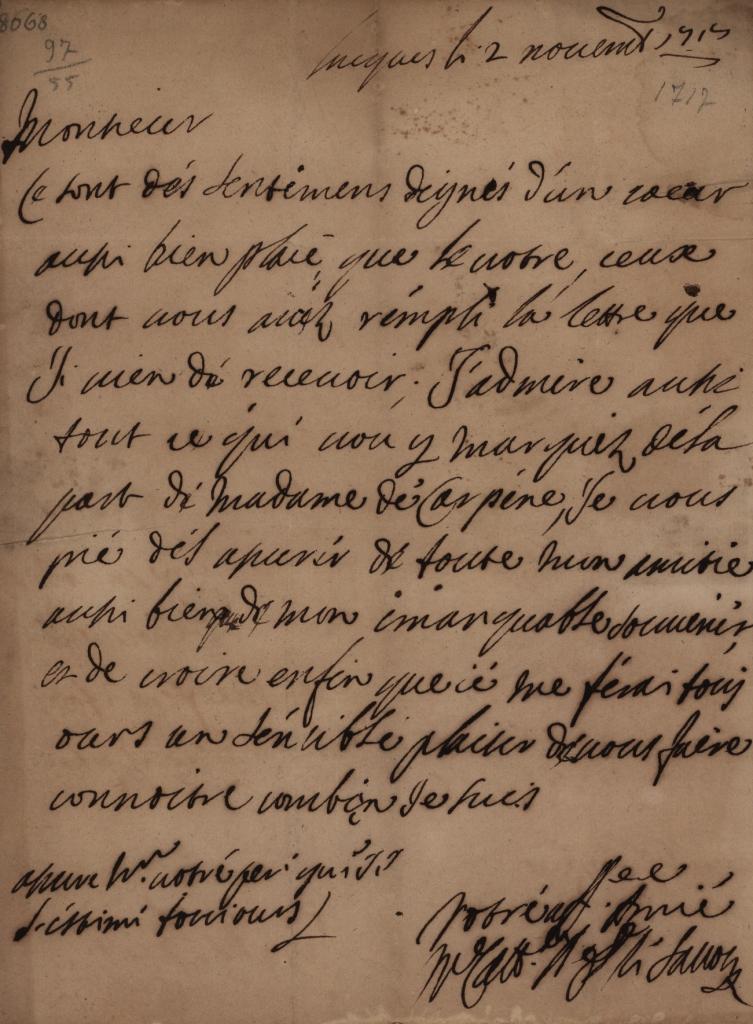 8668
97
55
Lucques le 2 novemb 1717
1717
Monsieur
Ce sont dés sentimens deignés d'un coeur
aussi bien placé, que le votre, ceux
dont vous avéz rémpli la lettre que
Ji vien dé recevoir; J'admire aussi
tout ce qui vou y marquez déla
part dé Madame dé Carpéne, Je vous
prié dél assurér de toute mon amitié
aussi bien de mon imanquable souvenir
et de croire enfin que ié me férai touj
ours un sénsiblé plaisir de vous faire
connoitre combien Je suis
assure Mr. votré peri qui
éstimé toujours
votré aff. Amié